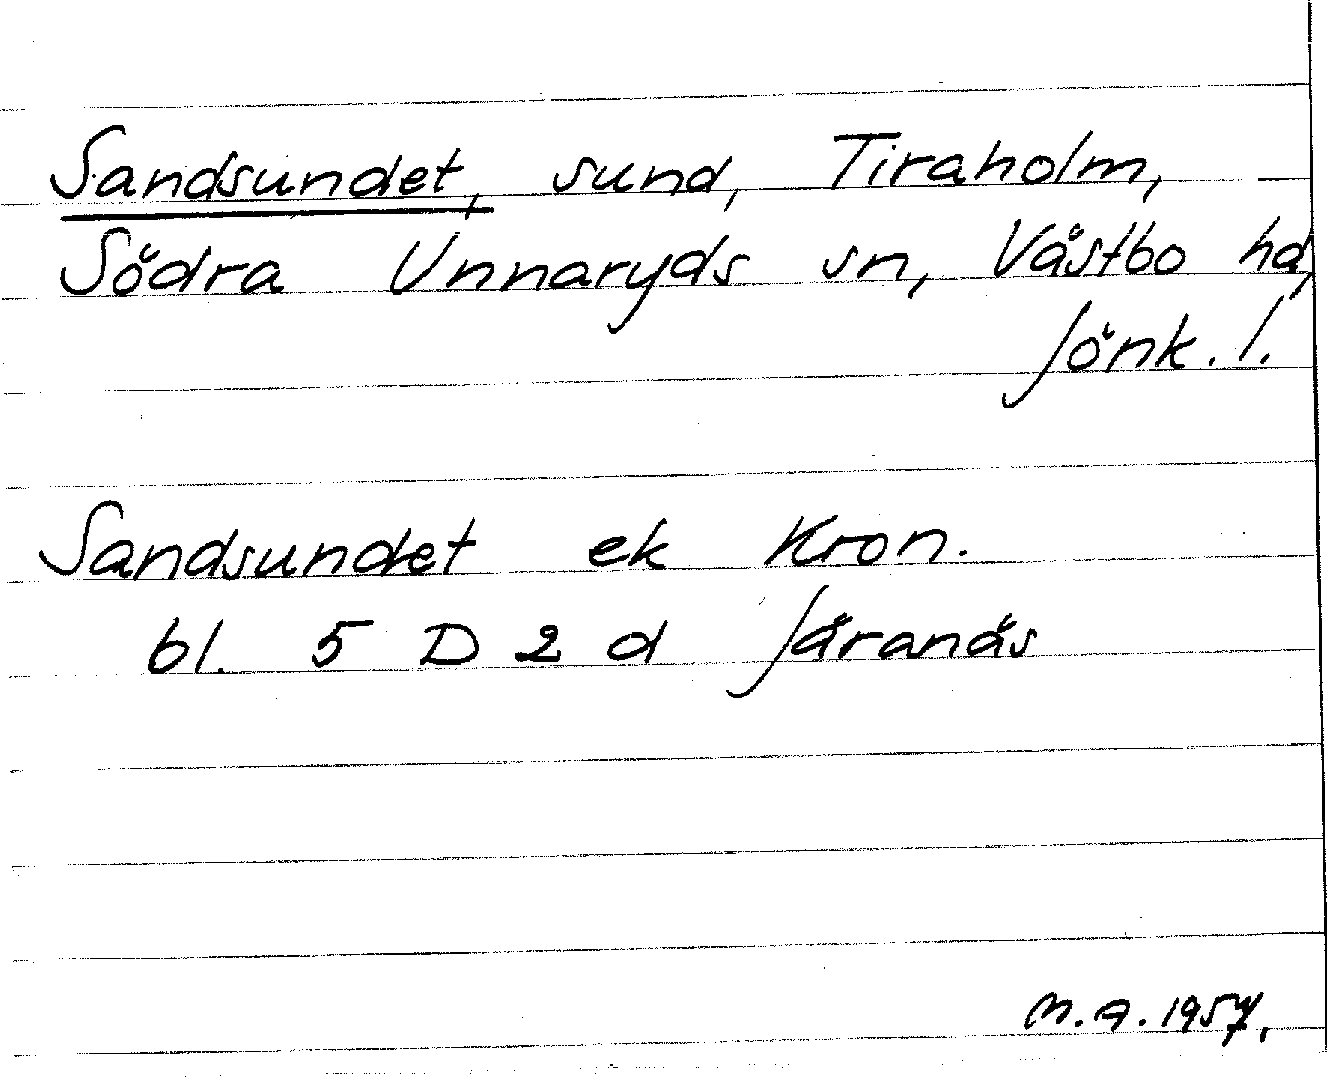 Sandsundet, sund, Tiraholm,
Södra Unnaryds sn, Västbo hd,
Jönk. l.
Sandsundet ek Kron.
bl. 5 D 2 d Järanäs
M.A. 1957.